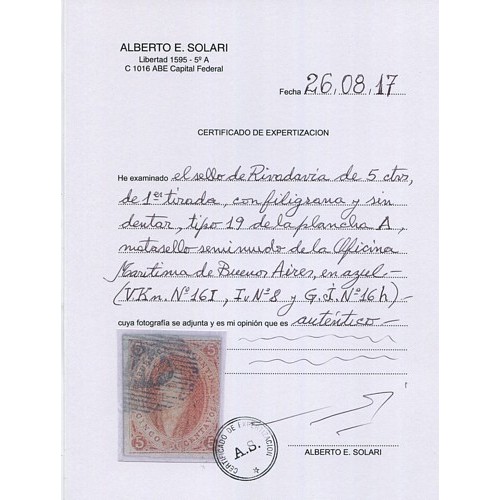 ALBERTO E. SOLARI
Libertad 1595 - 5º A
C 1016 ABE Capital Federal
Fecha 26/08/17
CERTIFICADO DE EXPERTIZACION
He examinado el sello de Rivadavia de 5 ctvs,
de 1era tirada, con filigrana y sin
dentar, tipo 19 de la plancha A,
matasello semimudo de la Oficina
Marítima de Buenos Aires, en azul -
(VKn. Nº 16I, Iv Nº 8 y G.J. Nº 16h) -
cuya fotografía se adjunta y es mi opinión que es auténtico -
5 5
CINCO CENTAVOS
5 5
CERTIFICADO DE EXPERTIZACION
A.S.
ALBERTO E. SOLARI